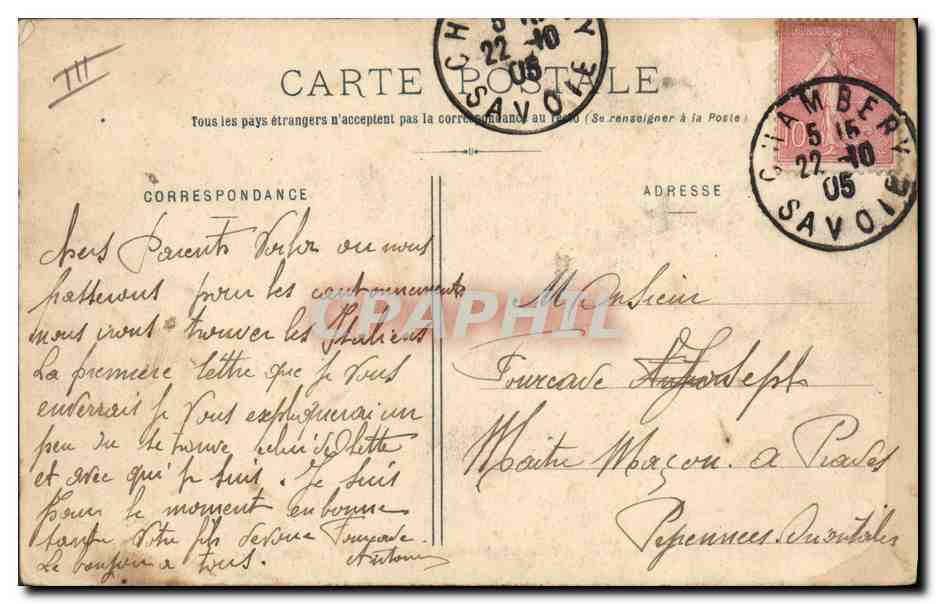 III
CARTE POSTALE
Tous les pays étrangers n'acceptent pas la correspondance au recto (Se renseigner à la Poste)
CHAMBERY
5 15
22 -10
05
SAVOIE
CHAMBERY
5 15
22 -10
05
SAVOIE
10
CORRESPONDANCE
Chers Parents Voila ou nous
passerons pour les cantonnements
nous irons trouver les Italiens
La première lettre que je Vous
enverrais je Vous expliquerai un
peu ou se trouve
et avec qui je suis. Je suis
pour le moment en bonne
santé Votre fils dévoué Fourcade
Le bonjour a tous. Antoine
ADRESSE
Monsieur
Fourcade Joseph
Maitre Maçon. a Prades
Pyrennees. Orientales
CPAPHIL